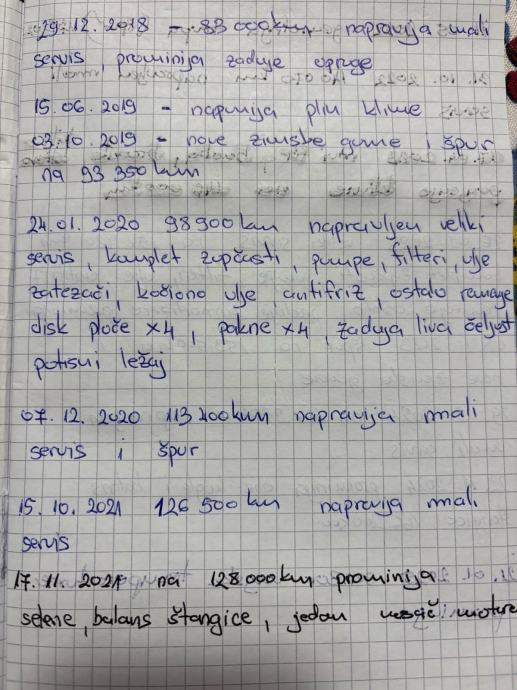 29.12.2018 - 83 000km napravija mali
servis, prominija zadnje opruge
15.06.2019 - napunija plin klime
03.10.2019 - nove zimske gume i špur
na 93 350km
24.01.2020 98900km napravljen veliki
servis, komplet zupčasti, pumpe, filteri, ulje
zatezači, kočiono ulje, antifriz, ostalo remenje
disk ploče x4, pakne x4, zadnja liva čeljust
potisni ležaj
07.12.2020 113 200km napravija mali
servis i špur
15.10.2021 126 500km napravija mali
servis
17.11.2021 na 128 000km prominija
selene, balans štangice, jedan nosač motora